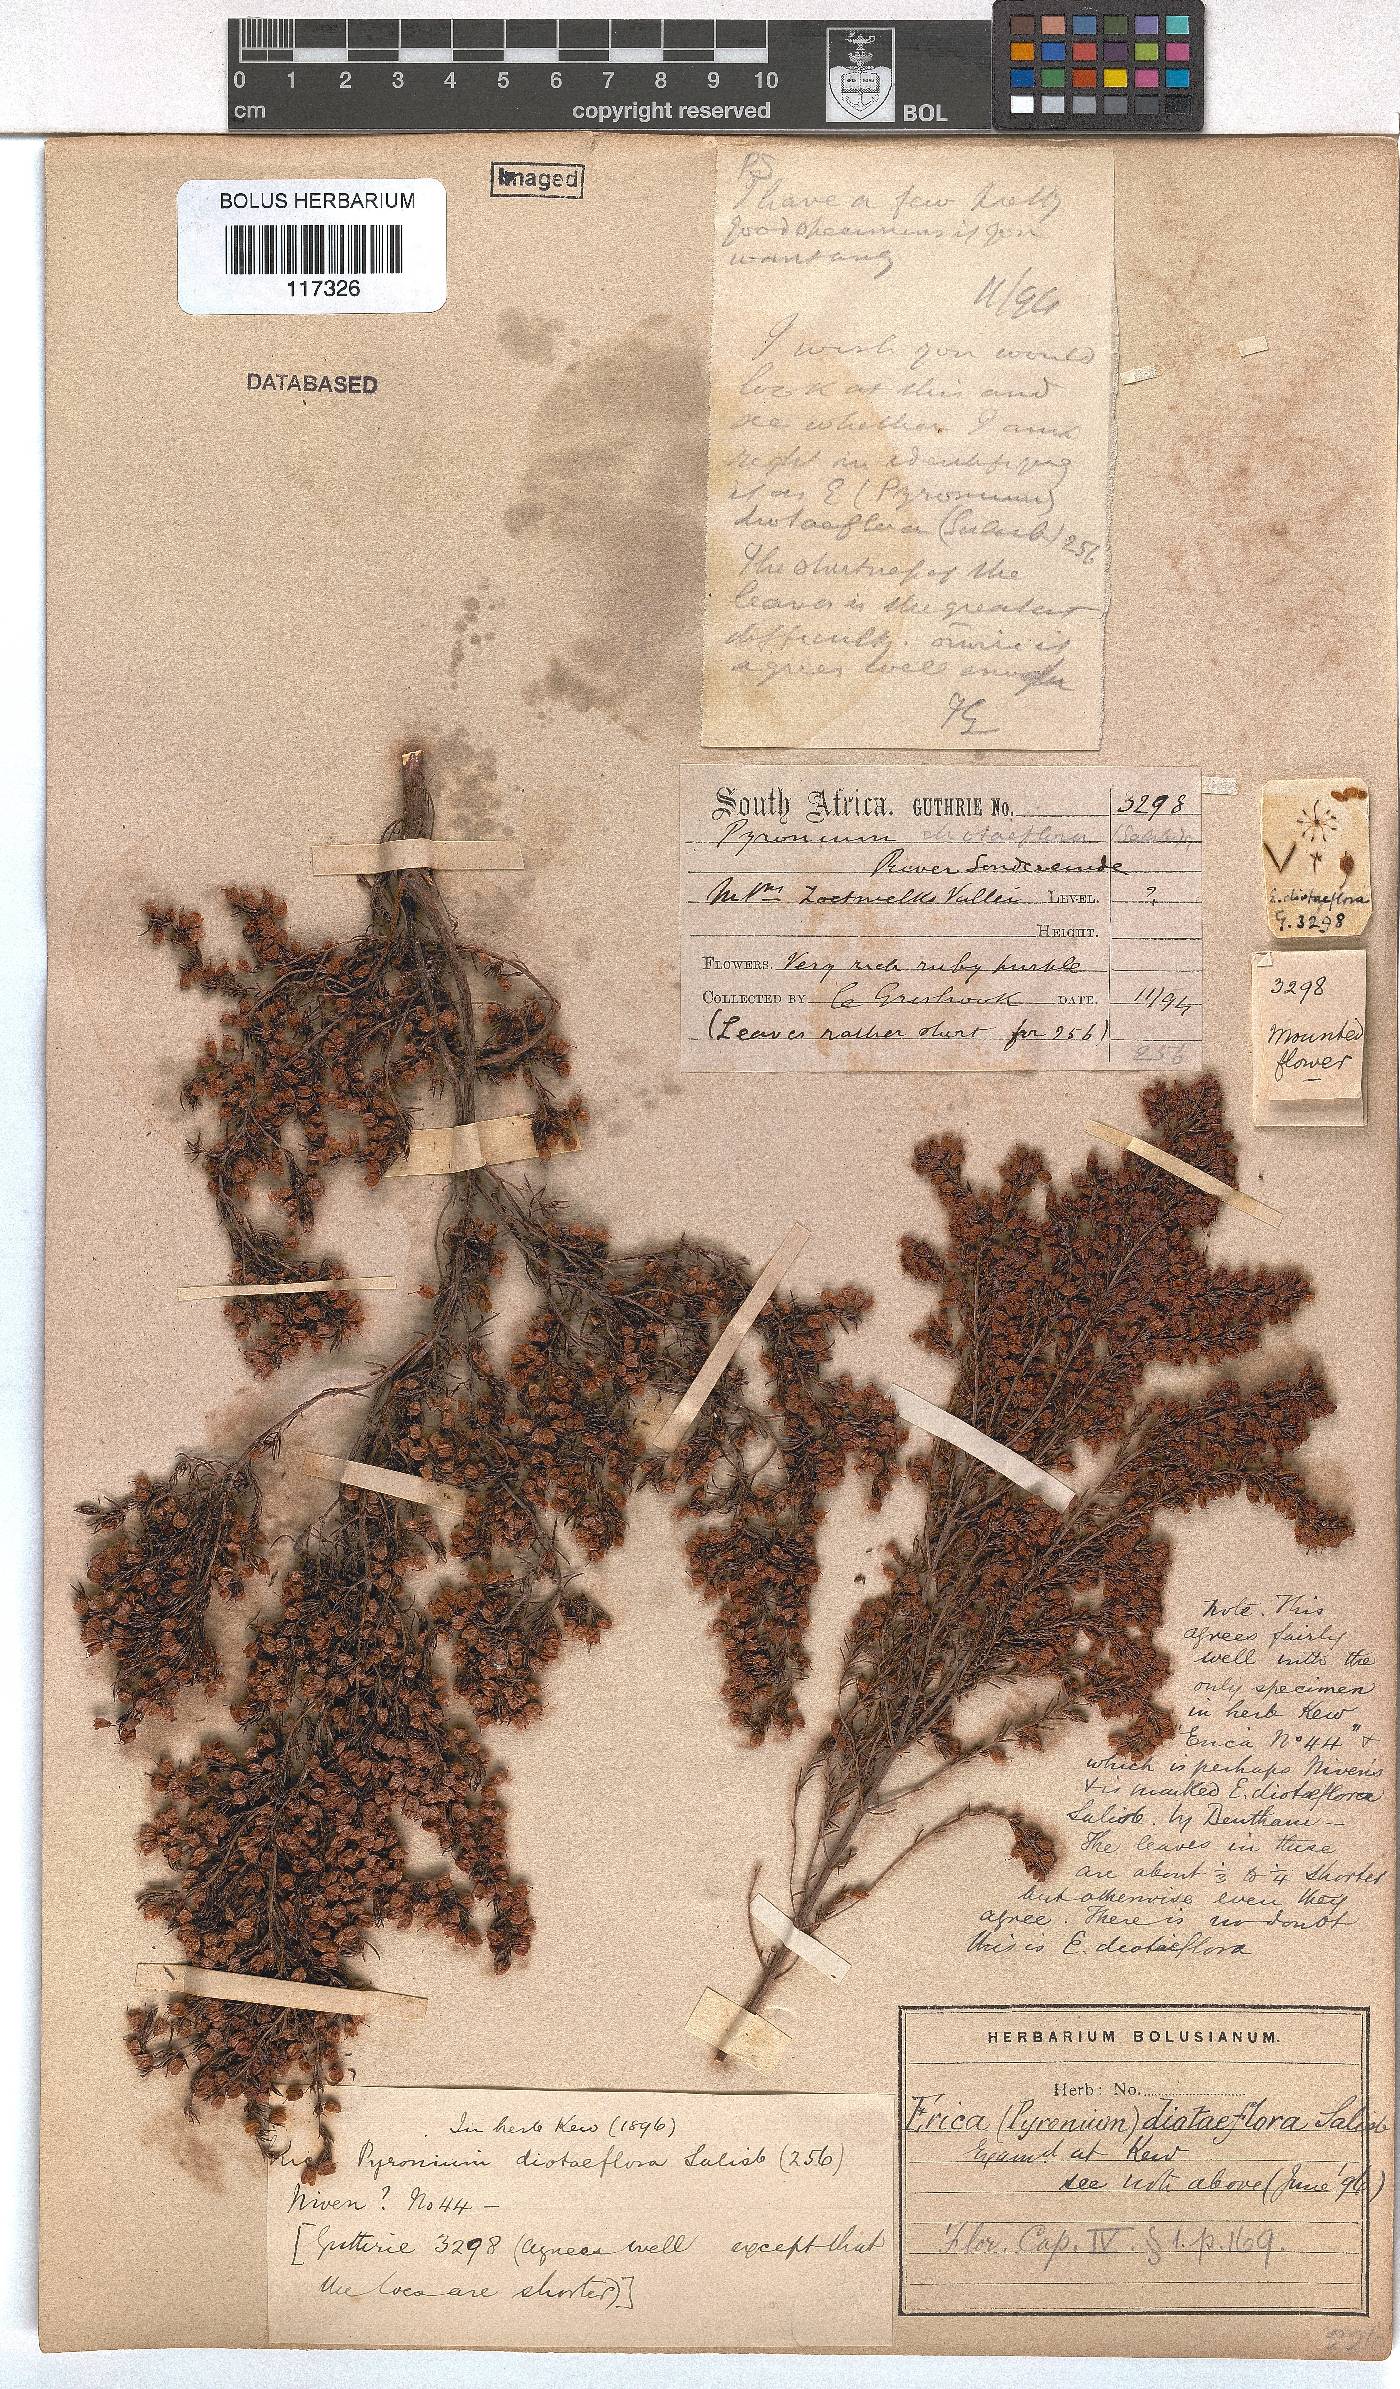 0 1 2 3 4 5 6 7 8 9 10
cm copyright reserved BOL
BOLUS HERBARIUM
117326
Imaged
DATABASED
PS
I have a few pretty
good specimens if you
want any
11/94
I wish you would
look at this and
see whether I am
right in identifying
it as E (Pyronium)
diotaeflora (Salisb) 256
The shortness of the
leaves is the greatest
difficulty.
agrees well enough
FG
South Africa. GUTHRIE No. 3298
Pyronium diotaeflora (Salisb)
River Sonderende
Zoetmelks Vallei LEVEL. ?
HEIGHT.
FLOWERS. Very rich ruby purple
COLLECTED BY DATE. 11/94
(Leaves rather short for 256)
256
E. diotaeflora
G. 3298
3298
Mounted
flower
Note. This
agrees fairly
well with the
only specimen
in herb Kew
"Erica No 44" &
which is perhaps Niven's
& is marked E. diotaeflora
Salisb. by Bentham —
The leaves in these
are about 1/3 to 1/4 shorter
but otherwise even they
agree. There is no doubt
this is E. diotaeflora
HERBARIUM BOLUSIANUM.
Herb: No.
Erica (Pyronium) diotaeflora Salisb
Examd at Kew
see note above (June '96)
Flor. Cap. IV. § 1. p. 169.
In herb Kew (1896)
Pyronium diotaeflora Salisb (256)
Niven? No 44 —
[Guthrie 3298 (agrees well except that
the lvs are shorter)]